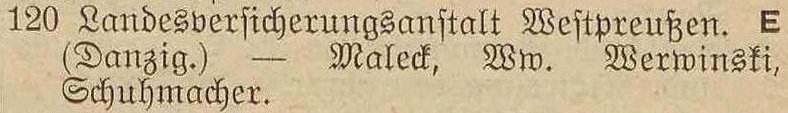 120 Landesversicherungsanstalt Westpreußen. E
(Danzig.) — Maleck, Ww. Werwinski,
Schuhmacher.